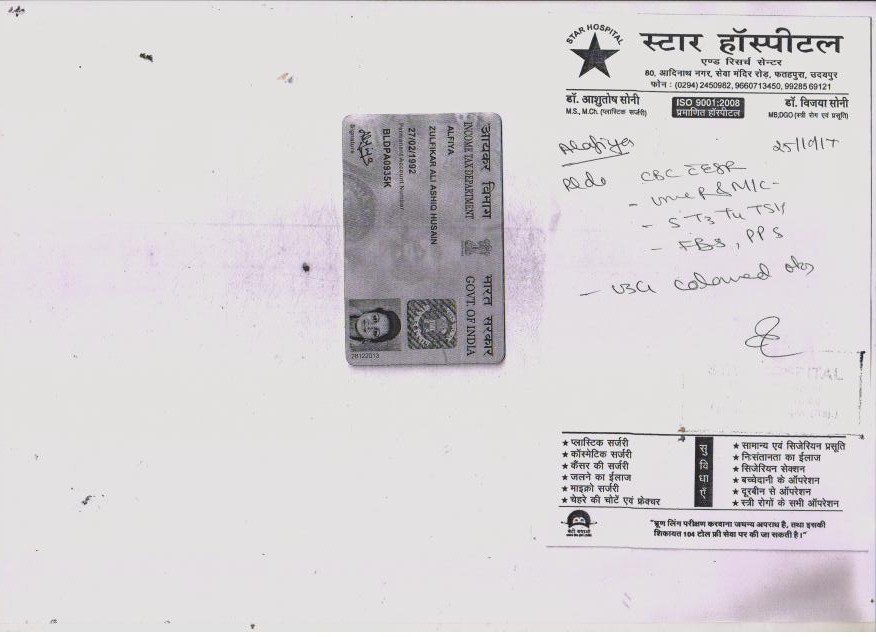 आयकर विभाग भारत सरकार
INCOME TAX DEPARTMENT GOVT. OF INDIA
ALFIYA
ZULFIKAR ALI ASHIQ HUSAIN
27/02/1992
Permanent Account Number
BLDPA0935K
Signature
28122013
STAR HOSPITAL
स्टार हॉस्पीटल
एण्ड रिसर्च सेन्टर
80, आदिनाथ नगर, सेवा मंदिर रोड़, फतहपुरा, उदयपुर
फोन : (0294) 2450982, 9660713450, 99285 69121
डॉ. आशुतोष सोनी ISO 9001:2008 डॉ. विजया सोनी
M.S., M.Ch. (प्लास्टिक सर्जरी) प्रमाणित हॉस्पीटल MB,DGO (स्त्री रोग एवं प्रसूति)
CBC ESR
- Urine R & M/C -
- S T3 T4 TSH
- FBS, PPS
- USG
सुविधाएँ
★ प्लास्टिक सर्जरी ★ सामान्य एवं सिजेरियन प्रसूति
★ कॉस्मेटिक सर्जरी ★ निःसंतानता का ईलाज
★ कैंसर की सर्जरी ★ सिजेरियन सेक्शन
★ जलने का ईलाज ★ बच्चेदानी के ऑपरेशन
★ माइक्रो सर्जरी ★ दूरबीन से ऑपरेशन
★ चेहरे की चोटें एवं फ्रेक्चर ★ स्त्री रोगों के सभी ऑपरेशन
"भ्रूण लिंग परीक्षण करवाना जघन्य अपराध है, तथा इसकी
शिकायत 104 टोल फ्री सेवा पर की जा सकती है।"